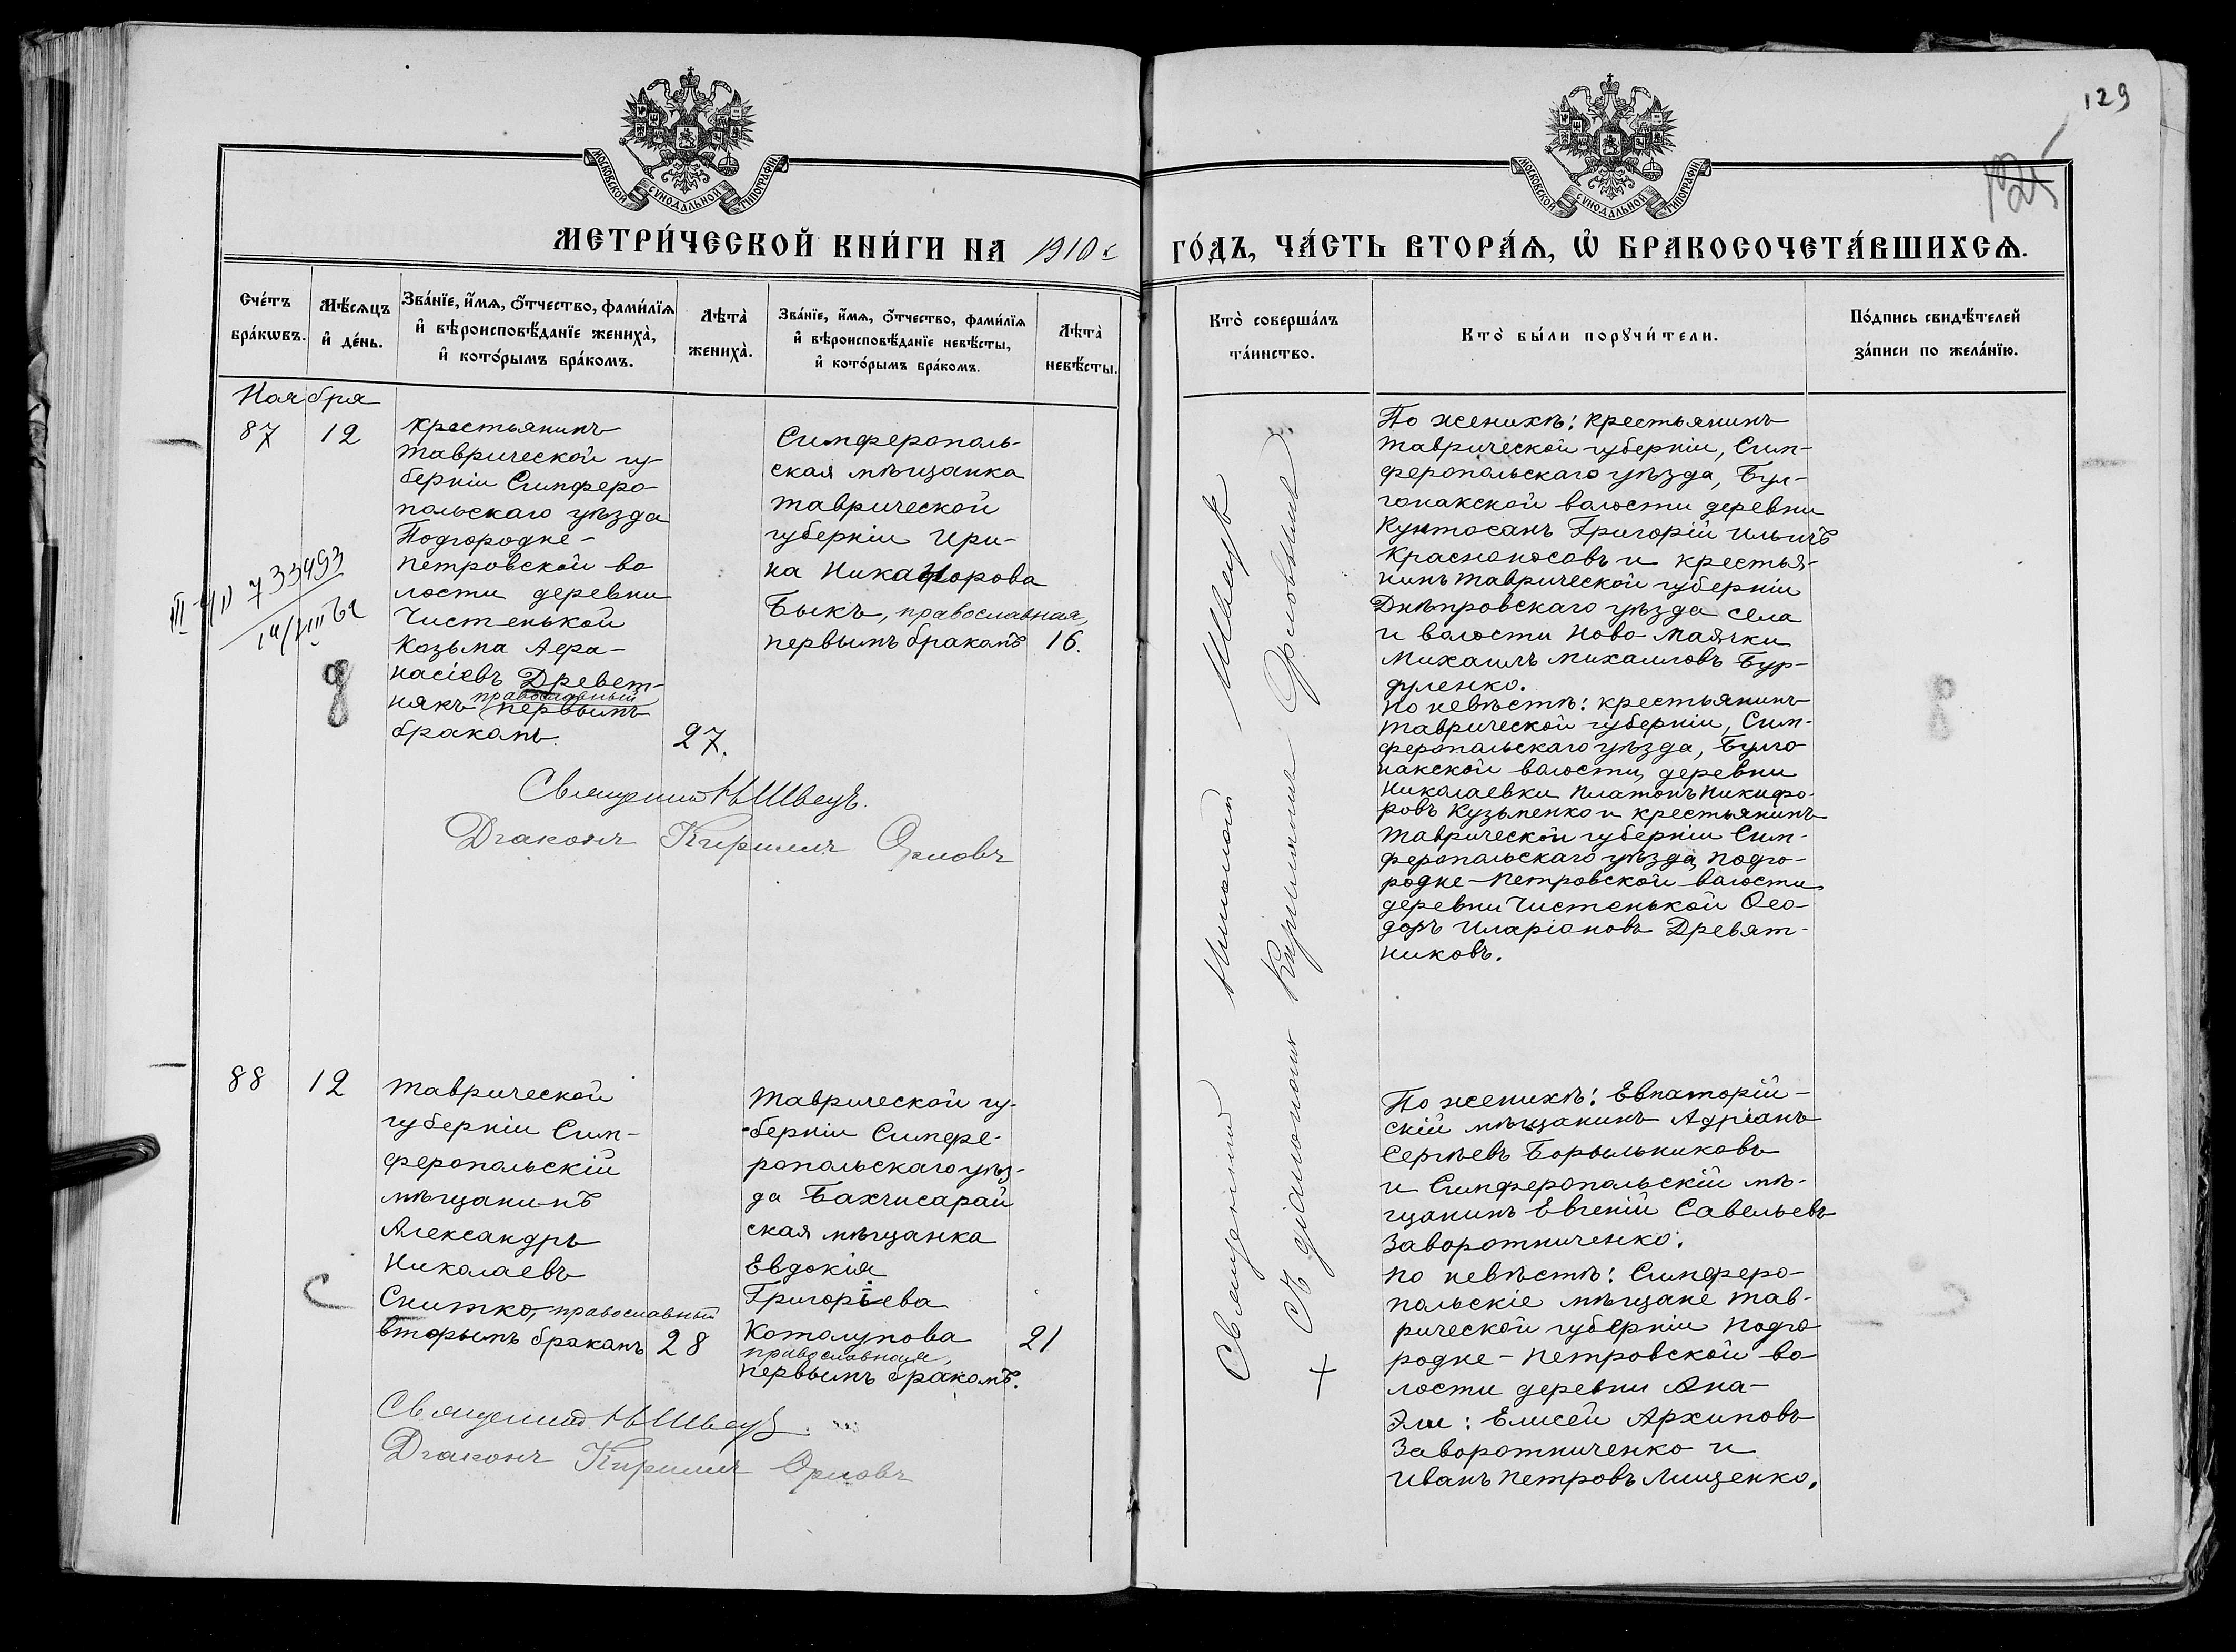 129
125
МОСКОВСКОЙ СѴНОДАЛЬНОЙ ТИПОГРАФІИ
МОСКОВСКОЙ СѴНОДАЛЬНОЙ ТИПОГРАФІИ
МЕТРИ́ЧЕСКОЙ КНИ́ГИ НА 1910 г
ГО́ДЪ, ЧА́СТЬ ВТОРА́Ѧ, Ѽ БРАКОСОЧЕТА́ВШИХСѦ.
Сче́тъ бра́кѡвъ.
Мѣ́сѧцъ и҆ де́нь.
Зва́нїе, и҆́мѧ, ѻ҆́тчество, фами́лїѧ
и҆ вѣроисповѣ́данїе жениха̀,
и҆ кото́рымъ бра́комъ.
Лѣта̀ жениха̀.
Зва́нїе, и҆́мѧ, ѻ҆́тчество, фами́лїѧ
и҆ вѣроисповѣ́данїе невѣ́сты,
и҆ кото́рымъ бра́комъ.
Лѣта̀ невѣ́сты.
Кто̀ соверша́лъ
та́инство.
Кто̀ бы́ли порꙋчи́тели.
По́дпись свидѣ́телей
за́писи по жела́нїю.
Ноября
87
12
Крестьянинъ
Таврической гу-
берніи Симферо-
польскаго уѣзда
Подгородне-
Петровской во
лости деревни
Чистенькой
Козьма Афа-
насіевъ Древет-
някъ православный первымъ
бракомъ.
27.
Симферополь-
ская мѣщанка
Таврической
губерніи Ири-
на Никифорова
Быкъ, православная,
первымъ бракомъ
16.
III-ЯП 733493
14/VIII 62
Священникъ Н Швецъ.
Діаконъ Кириллъ Орловъ
Священникъ Николай Швецъ
Съ діакономъ Кирилломъ Орловымъ
По женихѣ: крестьянинъ
Таврической губерніи, Сим-
феропольскаго уѣзда, Бул-
ганакской волости деревни
Кунтосанъ Григорій Ильичъ
Красноносовъ и крестья-
нинъ Таврической губерніи
Днѣпровскаго уѣзда села
и волости Ново Маячки
Михаилъ Михаиловъ Бур-
дуленко.
По невѣстѣ: крестьянинъ
Таврической губерніи, Сим-
феропольскаго уѣзда, Булга
накской волости, деревни
Николаевки Платонъ Никифо-
ровъ Кузьменко и крестьянинъ
Таврической губерніи Сим-
феропольскаго уѣзда, Подго-
родне-Петровской волости
деревни Чистенькой Ѳео-
доръ Иларіоновъ Древят-
никовъ.
88
12
Таврической
губерніи Сим-
феропольскій
мѣщанинъ
Александръ
Николаевъ
Снитко, православный
вторымъ бракомъ
28
Таврической гу-
берніи Симфе-
ропольскаго уѣз-
да Бахчисарай
ская мѣщанка
Евдокія
Григоріева
Котолупова
православная,
первымъ бракомъ.
21
Священникъ Н Швецъ.
Діаконъ Кириллъ Орловъ
По женихѣ: Евпаторій-
скій мѣщанинъ Адріанъ
Сергѣевъ Борыльниковъ
и Симферопольскій мѣ-
щанинъ Евгеній Савельевъ
Заворотниченко.
По невѣстѣ: Симферо-
польскіе мѣщане Тав-
рической губерніи Подго
родне-Петровской во
лости деревни Ана-
Эли: Елисей Архиповъ
Заворотниченко и
Иванъ Петровъ Лищенко.